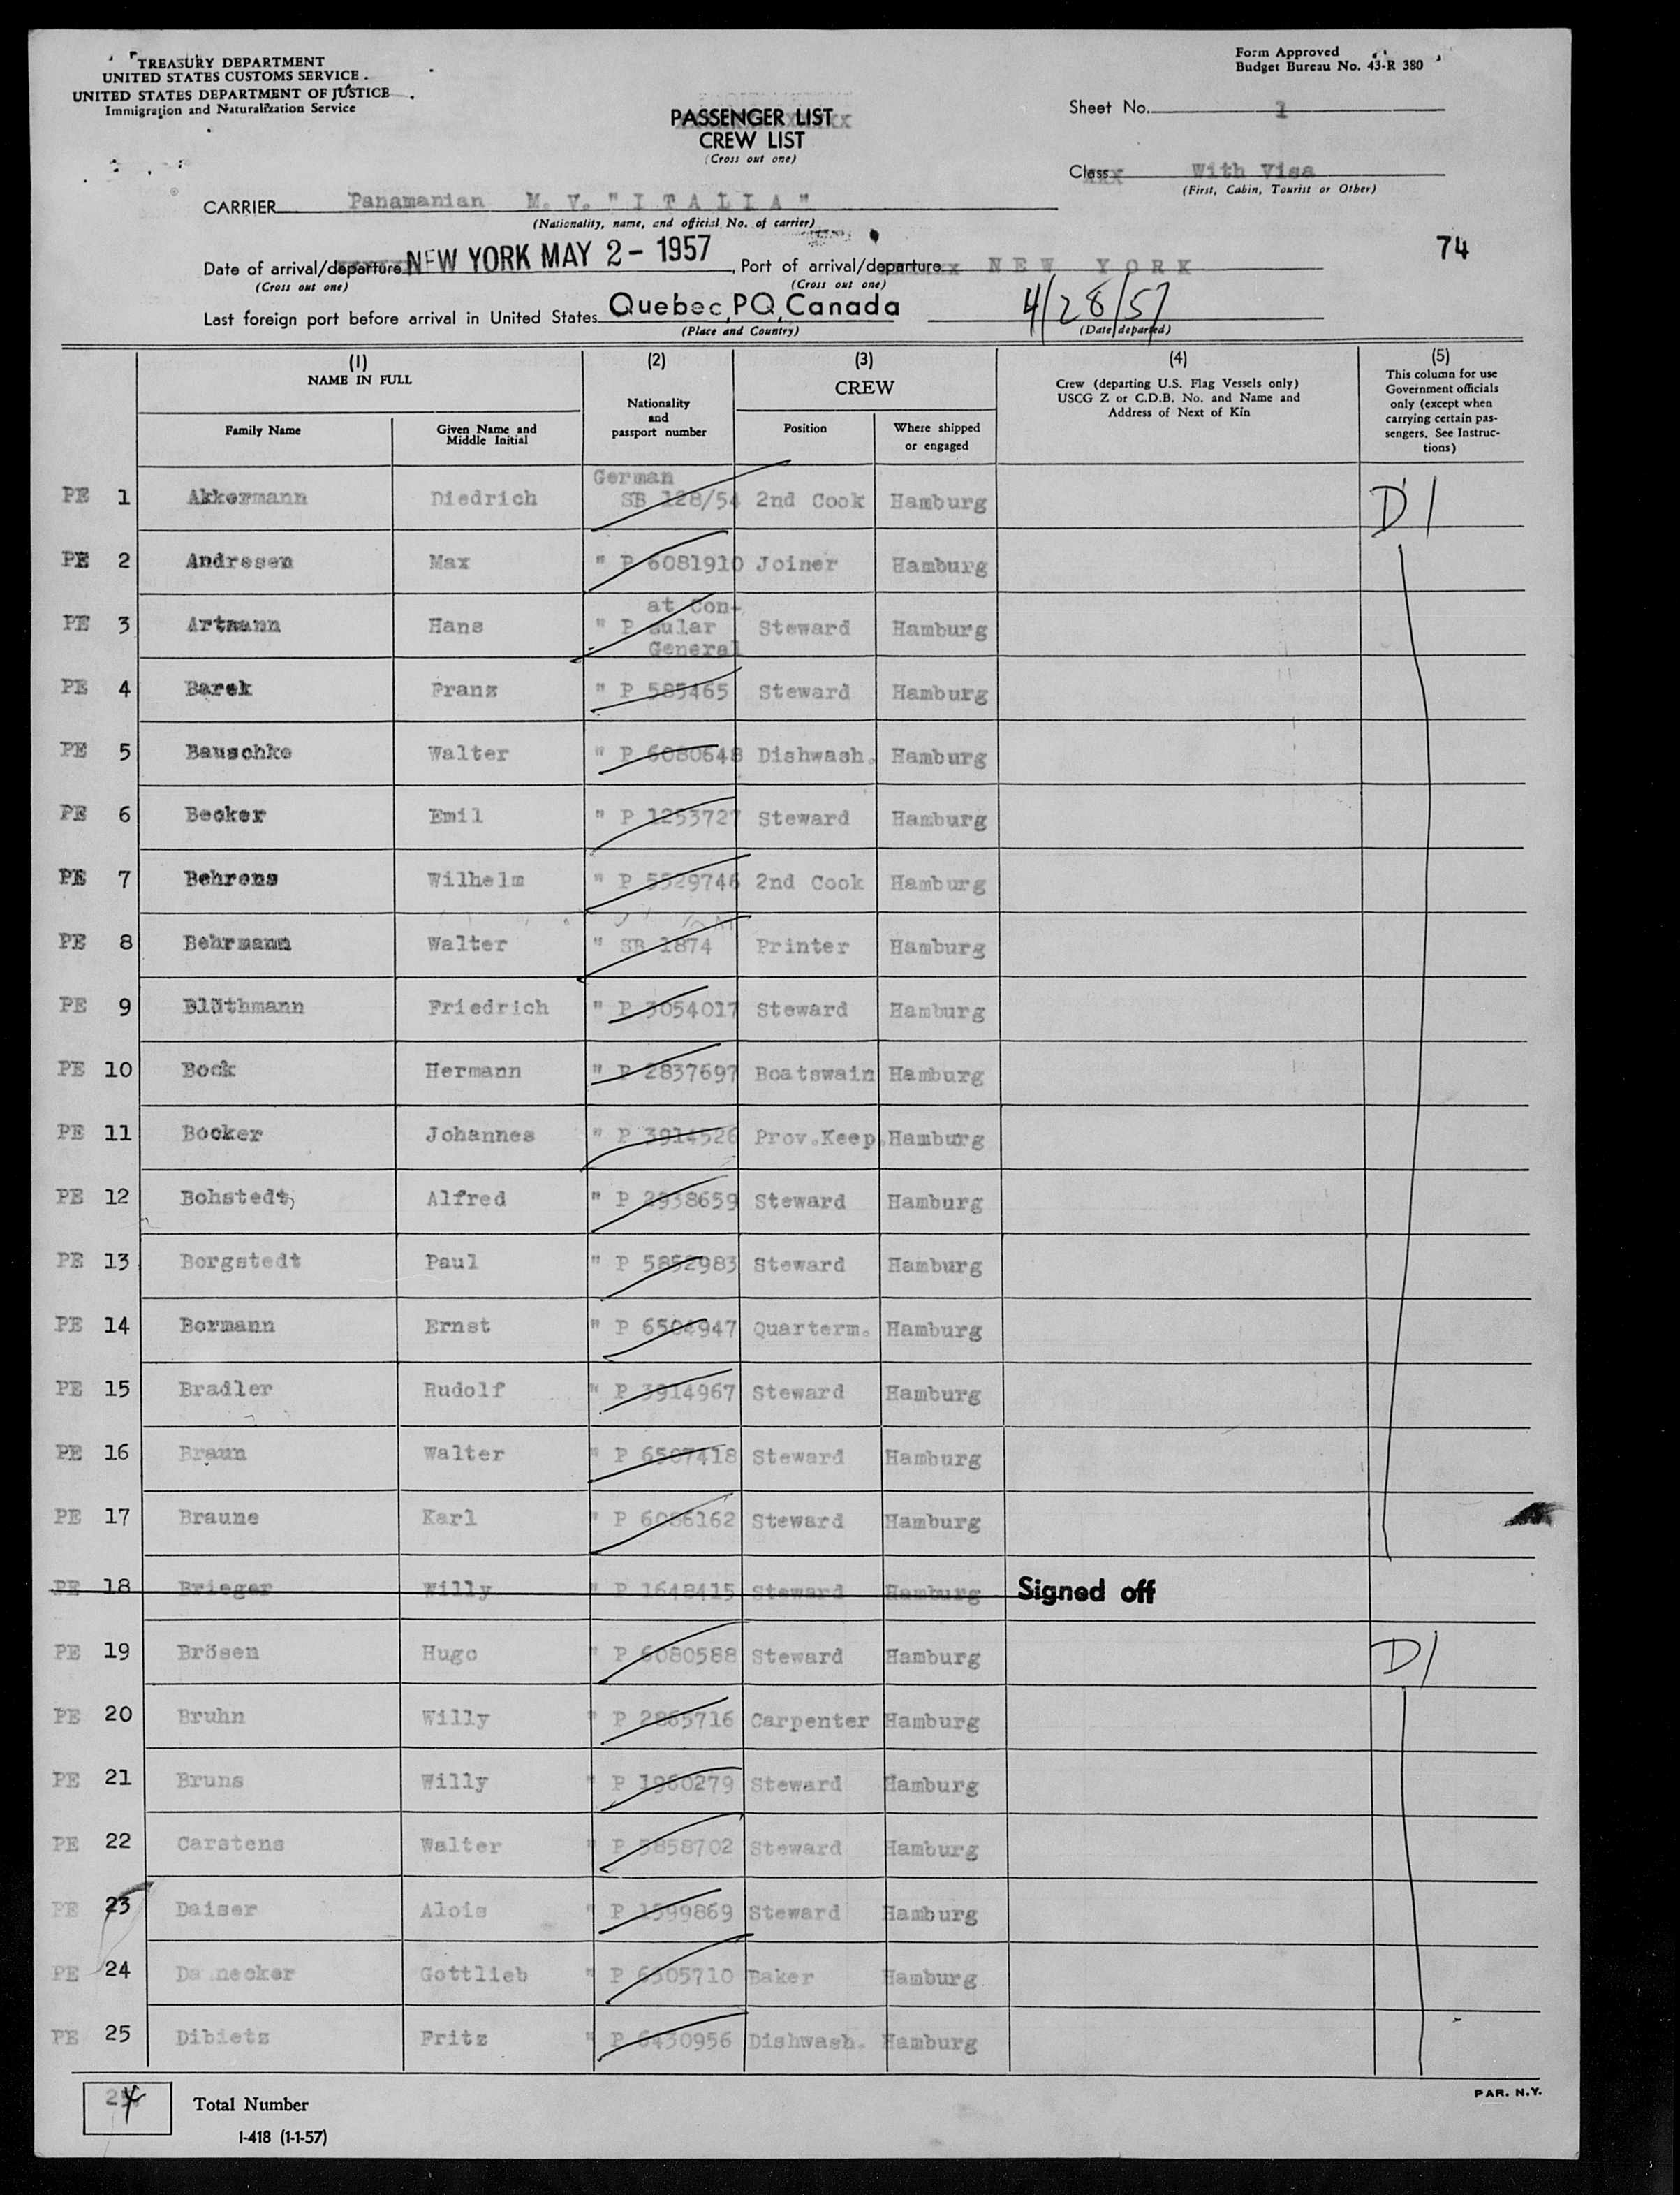 TREASURY DEPARTMENT
UNITED STATES CUSTOMS SERVICE
UNITED STATES DEPARTMENT OF JUSTICE
Immigration and Naturalization Service
Form Approved
Budget Bureau No. 43-R 380
PASSENGER LIST
CREW LIST
(Cross out one)
Sheet No. 1
Class With Visa
(First, Cabin, Tourist or Other)
CARRIER Panamanian M. V. "I T A L I A"
(Nationality, name, and official No. of carrier)
74
Date of arrival/departure NEW YORK MAY 2 - 1957, Port of arrival/departure N E W Y O R K
(Cross out one) (Cross out one)
Last foreign port before arrival in United States Quebec, PQ, Canada 4/28/57
(Place and Country) (Date departed)
(1) NAME IN FULL
Family Name
Given Name and Middle Initial
(2) Nationality and passport number
(3) CREW
Position
Where shipped or engaged
(4) Crew (departing U.S. Flag Vessels only) USCG Z or C.D.B. No. and Name and Address of Next of Kin
(5) This column for use Government officials only (except when carrying certain passengers. See Instructions)
PE 1 Akkermann Diedrich German SB 128/54 2nd Cook Hamburg D1
PE 2 Andresen Max " P 6081910 Joiner Hamburg
PE 3 Artmann Hans " P at Con-sular General Steward Hamburg
PE 4 Barek Franz " P 585465 Steward Hamburg
PE 5 Bauschke Walter " P 6080648 Dishwash. Hamburg
PE 6 Becker Emil " P 1253727 Steward Hamburg
PE 7 Behrens Wilhelm " P 5529746 2nd Cook Hamburg
PE 8 Behrmann Walter " SB 1874 Printer Hamburg
PE 9 Blüthmann Friedrich " P 3054017 Steward Hamburg
PE 10 Bock Hermann " P 2837697 Boatswain Hamburg
PE 11 Bocker Johannes " P 3914526 Prov.Keep. Hamburg
PE 12 Bohstedt Alfred " P 2938659 Steward Hamburg
PE 13 Borgstedt Paul " P 5852983 Steward Hamburg
PE 14 Bormann Ernst " P 6504947 Quarterm. Hamburg
PE 15 Bradler Rudolf " P 3914967 Steward Hamburg
PE 16 Braun Walter " P 6507418 Steward Hamburg
PE 17 Braune Karl " P 6086162 Steward Hamburg
PE 18 Brieger Willy " P 1648415 Steward Hamburg Signed off
PE 19 Brösen Hugo " P 6080588 Steward Hamburg D1
PE 20 Bruhn Willy " P 2865716 Carpenter Hamburg
PE 21 Bruns Willy " P 1960279 Steward Hamburg
PE 22 Carstens Walter " P 5858702 Steward Hamburg
PE 23 Daiser Alois " P 1599869 Steward Hamburg
PE 24 Gottlieb " P 6505710 Baker Hamburg
PE 25 Dibietz Fritz " P 6430956 Dishwash. Hamburg
24 Total Number
I-418 (1-1-57)
PAR. N.Y.